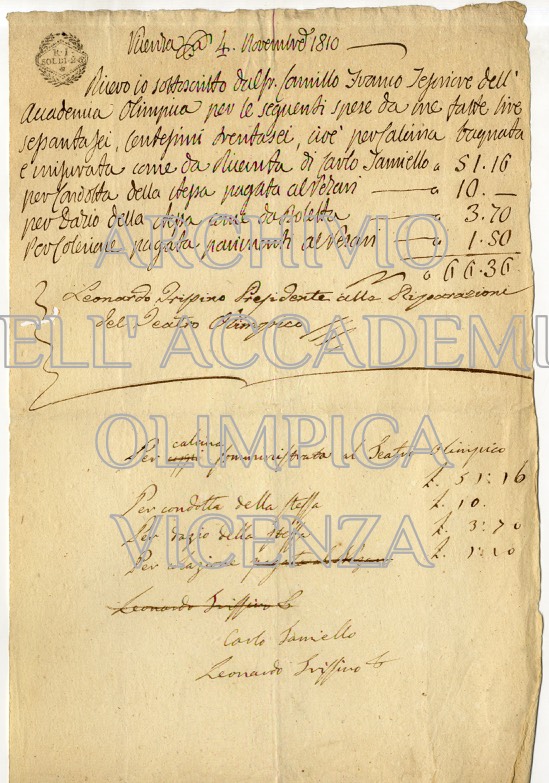 R. I
SOLDI 2-5
Vicenza 4. Novembre 1810
Ricevo io sottoscritto dal Sr. Camillo Franco Tesoriere dell'
Accademia Olimpica per le seguenti spese da me fatte lire
sessantasei, Centesimi trentasei, cioè per Calcina bagnata
e misurata come da Ricevuta di Carlo Janiello a 51.16
per Condotta della stessa pagata al Vezari a 10.—
per Dazio della stessa come da Boletta a 3.70
Per Colazione pagata parimenti al Vezari a 1.50
a 66.36
Leonardo Trissino Presidente alla Riparazione
del Teatro Olimpico
ARCHIVIO
ELL' ACCADEMI
OLIMPICA
VICENZA
calcina
Per somministrata al Teatro Olimpico
L. 51:16
Per condotta della stessa L. 10.
Per dazio della stessa L. 3:70
Per colazione pagata al L. 1:50
Leonardo Trissino
Carlo Janiello
Leonardo Trissino